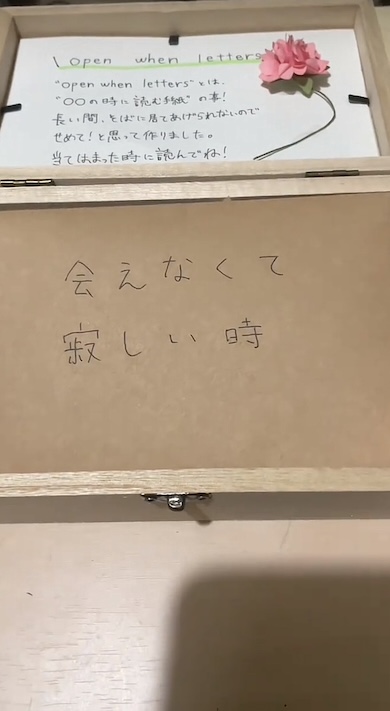 \ open when letters
"open when letters"とは、
"〇〇の時に読む手紙"の事!
長い間、そばに居てあげられないので
せめて!と思って作りました。
当てはまった時に読んでね!
会えなくて
寂しい時